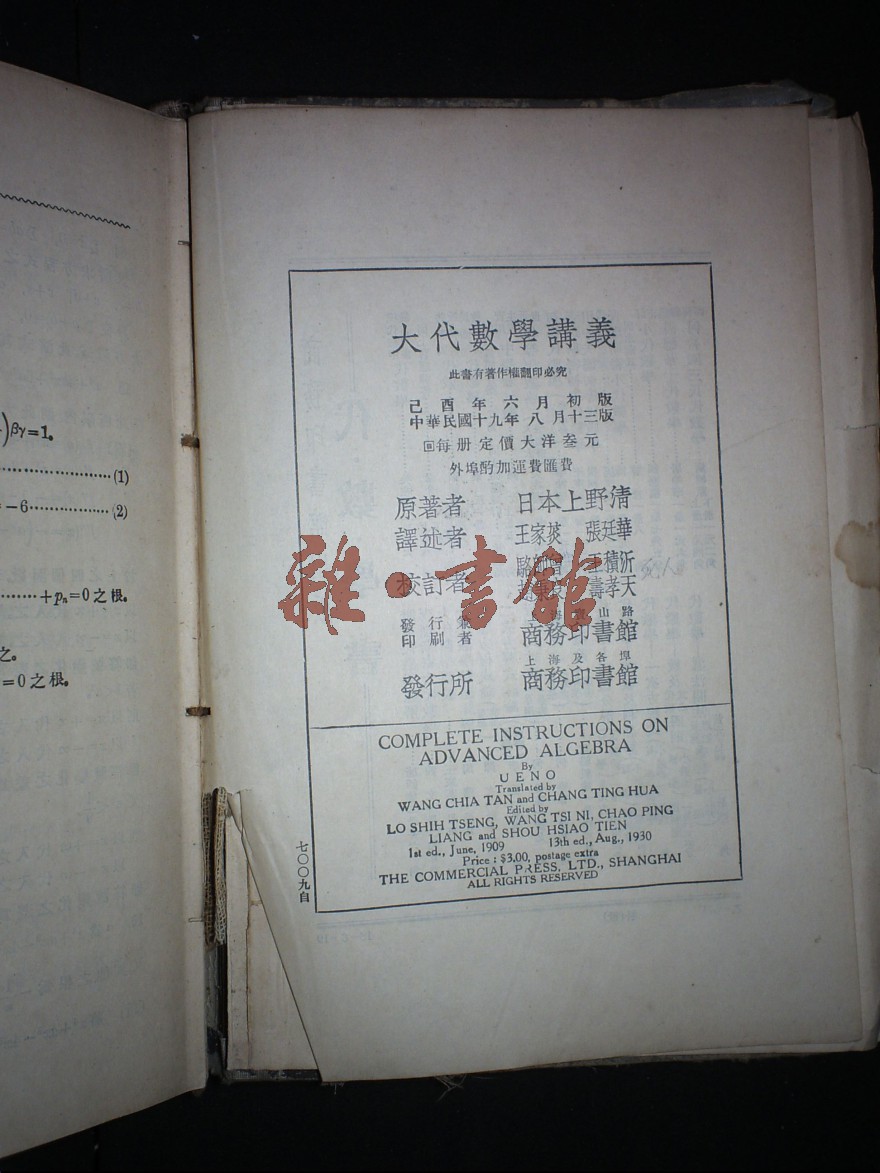 )βγ=1。
(1)
=-6 (2)
+pₙ=0之根。
之。
=0之根。
大代數學講義
此書有著作權翻印必究
己酉年六月初版
中華民國十九年八月十三版
回每册定價大洋叁元
外埠酌加運費匯費
原著者 日本上野清
譯述者 王家菼 張廷華
駱師曾 王積沂
校訂者 壽孝天
發行兼 上海寶山路
印刷者 商務印書館
上海及各埠
發行所 商務印書館
雜·書館
COMPLETE INSTRUCTIONS ON
ADVANCED ALGEBRA
By
UENO
Translated by
WANG CHIA TAN and CHANG TING HUA
Edited by
LO SHIH TSENG, WANG TSI NI, CHAO PING
LIANG and SHOU HSIAO TIEN
1st ed., June, 1909 13th ed., Aug., 1930
Price: $3.00, postage extra
THE COMMERCIAL PRESS, LTD., SHANGHAI
ALL RIGHTS RESERVED
七〇〇九自